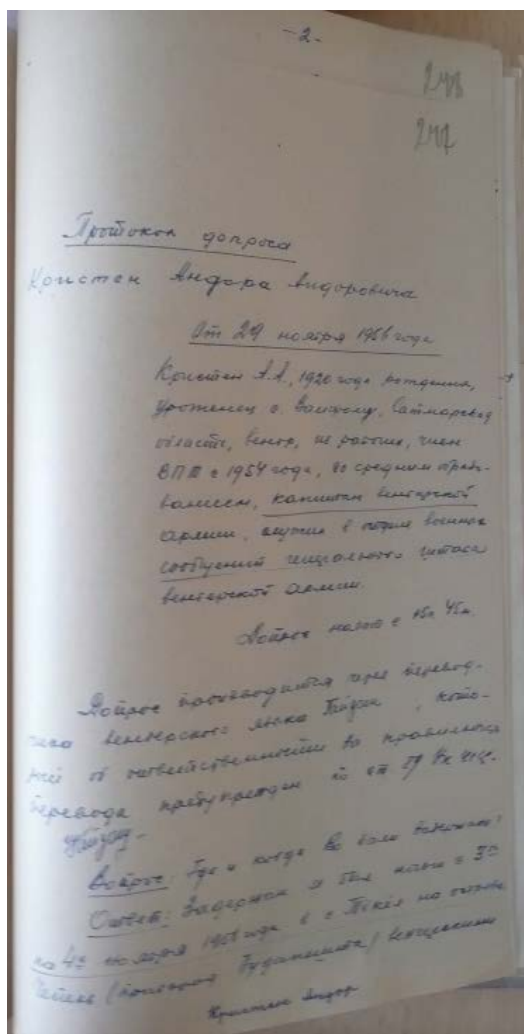 -2-
248
247
Протокол допроса
Кристен Андора Андоровича
От 29 ноября 1956 года
Кристен А.А., 1920 года рождения,
уроженец с. Сатмарской
области, венгр, из рабочих, член
ВПТ с 1954 года, со средним образо-
ванием, капитан венгерской
армии, служил в отделе военных
сообщений генерального штаба
венгерской армии.
Допрос начат с 15ч 45м.
Допрос производится через перевод-
чика венгерского языка, кото-
рый об ответственности за правильность
перевода предупрежден по ст
Вопрос: Где и когда Вы были задержаны?
Ответ: Задержан я был ночью с 3го
на 4е ноября 1956 года в г. на острове
Чепель Будапешта) венгерскими
Кристен Андор